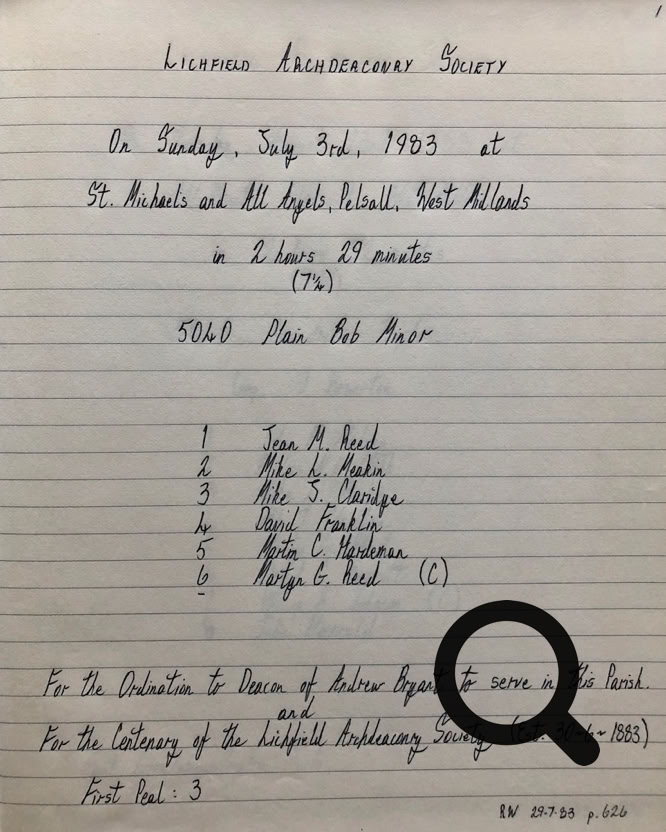 1
LICHFIELD ARCHDEACONRY SOCIETY
On Sunday, July 3rd, 1983 at
St. Michaels and All Angels, Pelsall, West Midlands
in 2 hours 29 minutes
(7¼)
5040 Plain Bob Minor
1 Jean M. Reed
2 Mike L. Meakin
3 Mike J. Claridge
4 David Franklin
5 Martin C. Hardeman
6 Martyn G. Reed (C)
For the Ordination to Deacon of Andrew Bryant to serve in this Parish.
and
For the Centenary of the Lichfield Archdeaconry Society (Est. 1883)
First Peal: 3
RW 29.7.83 p.626